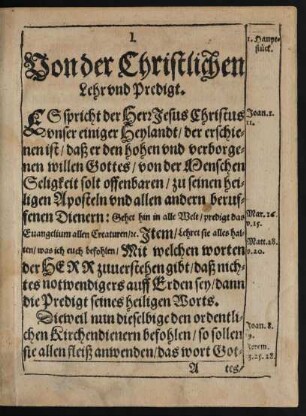 I.
Von der Christlichen
Lehr vnd Predigt.
1. Haupt-
stück.
ES spricht der Herr Jesus Christus
vnser einiger Heylandt/ der erschie-
nen ist/ daß er den hohen vnd verborge-
nen willen Gottes/ von der Menschen
Seligkeit solt offenbaren/ zu seinen hei-
ligen Aposteln vnd allen andern beruf-
fenen Dienern: Gehet hin in alle Welt/ predigt das
Euangelium allen Creaturen/ꝛc. Item/ lehret sie alles hal-
ten/ was ich euch befohlen/ Mit welchen worten
der HERR zuuerstehen gibt/ daß nich-
tes notwendigers auff Erden sey/ dann
die Predigt seines heiligen Worts.
Dieweil nun dieselbige den ordentli-
chen Kirchendienern befohlen/ so sollen
sie allen fleiß anwenden/ das wort Got-
A
tes-
Joan. 1.
Mar. 16.
v. 15.
Matt. 28.
v. 20.
Joan. 8.
Jerem.